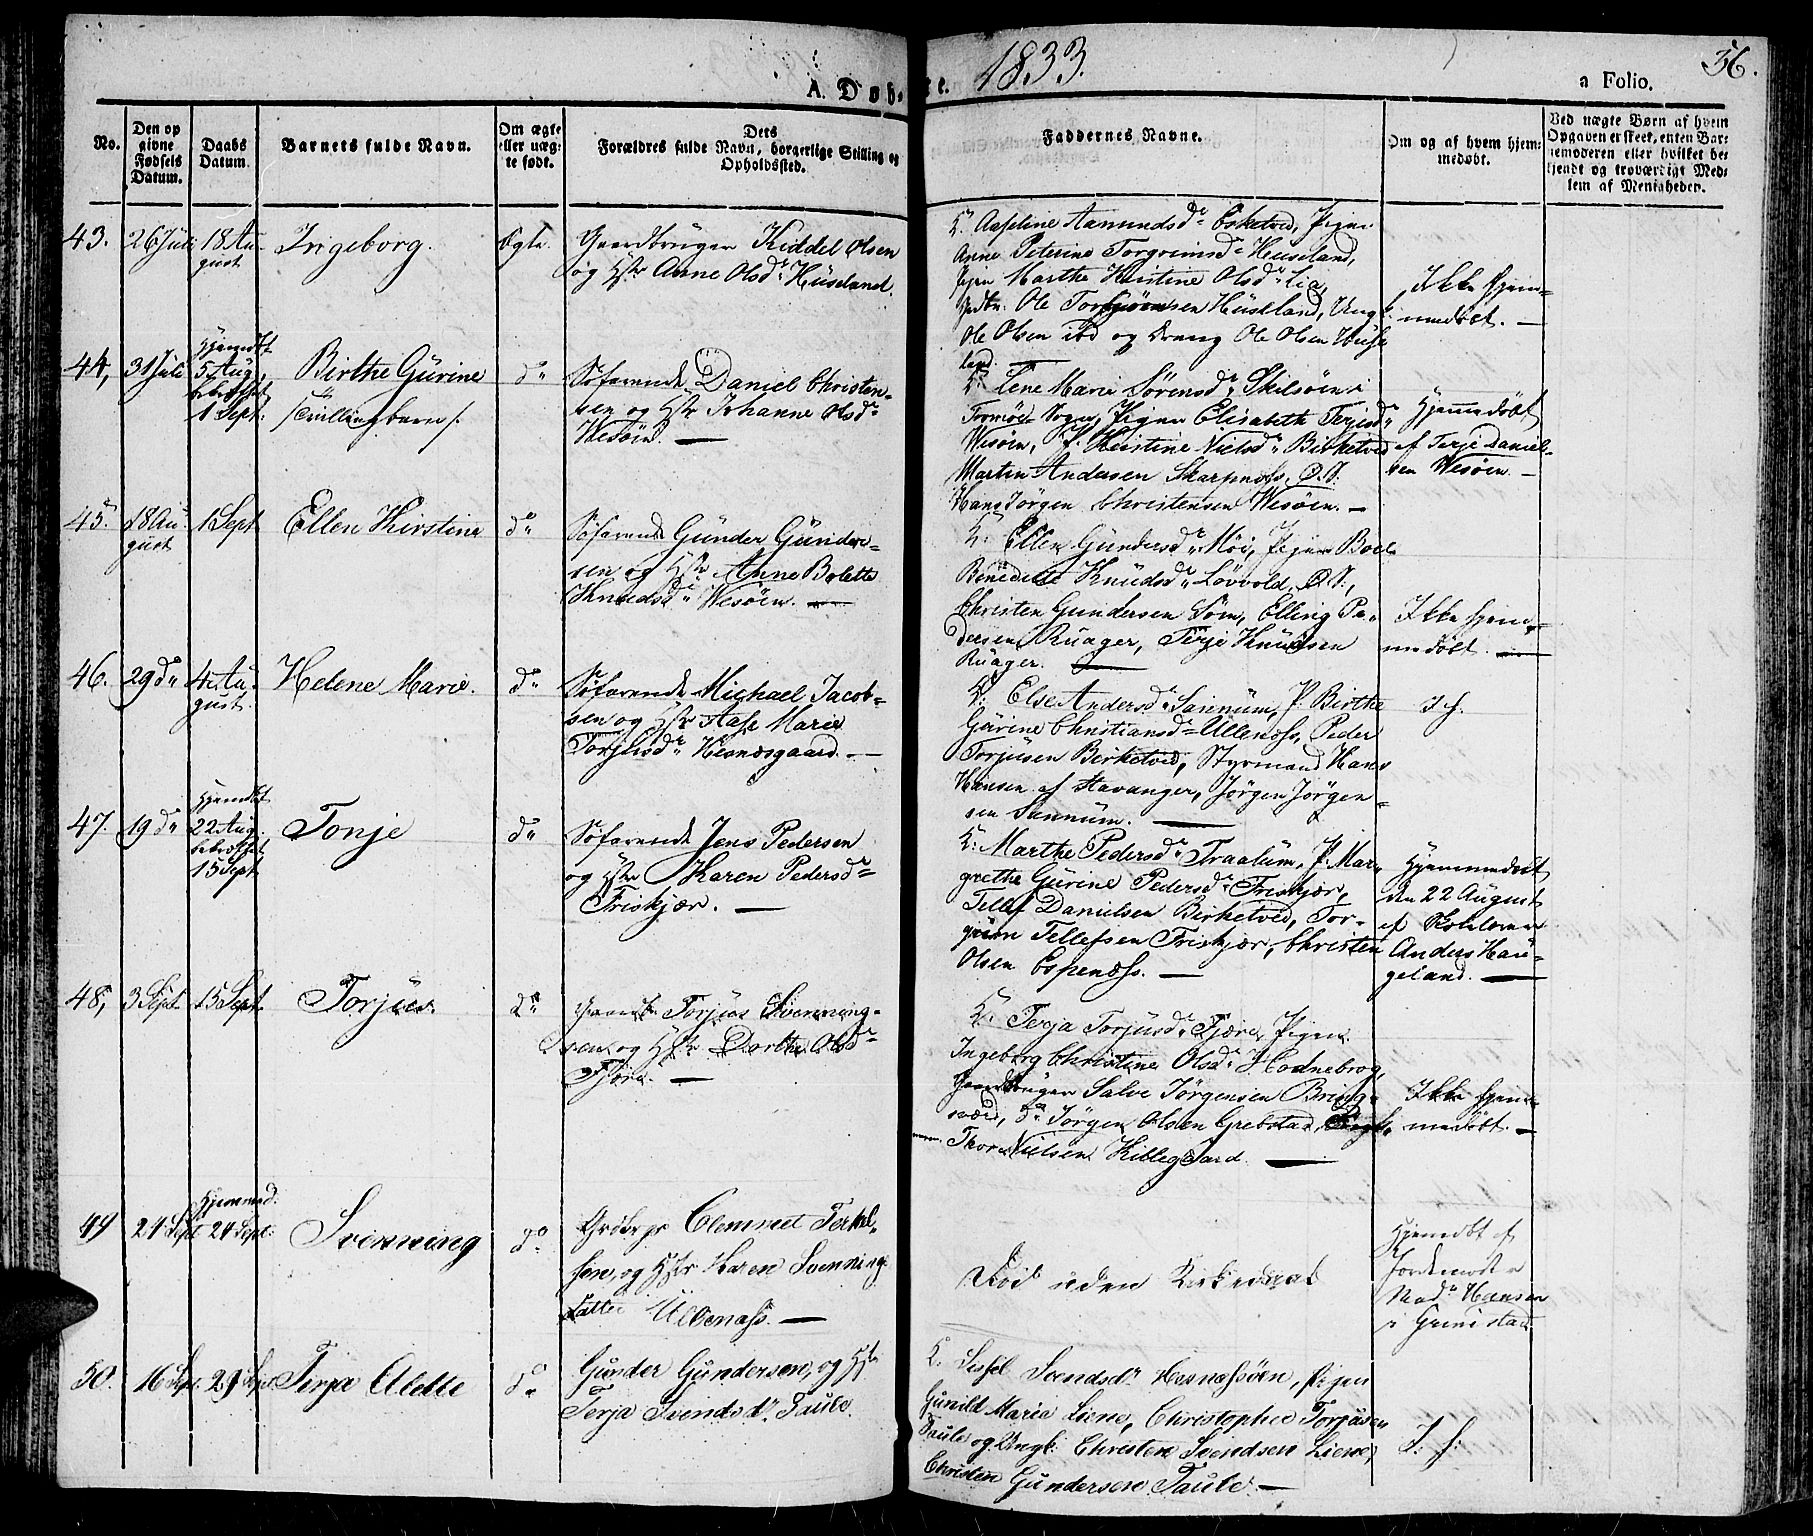 1833.
36.
A. Døb-
te.
a Folio.
No.
Den op
givne
Fødsels
Datum.
Daabs
Datum.
Barnets fulde Navn.
Om ægte
eller uæg-
te født.
Dets
Forældres fulde Navn, borgerlige Stilling og
Opholdssted.
Faddernes Navne.
Om og af hvem hjem-
medøbt.
Ved uægte Børn af hvem
Opgaven er skeet, enten Bar-
nemoderen eller hvilket be-
kjendt og troværdigt Med-
lem af Menigheden.
43.
26 Juli
18 Au-
gust
Ingeborg.
Ægte.
Gaardbruger Kiddel Olsen
og Hstr Anne Olsd. Huseland.
K. Aaseline Aamundsd. Eskelved, Pigen
Anne Peterine Torgrimsd. Huseland,
Pigen Marthe Kirstine Olsd. Lia,
Gdbr. Ole Torbjørnsen Huseland, Ungk.
Ole Olsen ibd og Dreng Ole Olsen Huse-
land.
Ikke hjem-
medøbt. —
44,
31 Juli
Hjemdbt
5 Aug.
bekræftet
1 Sept.
Birthe Gurine
/: Tvillingbarn :/
do
Søfarende Daniel Christen-
sen og Hstr Johanne Olsd.
Wesøen. —
K. Lene Marie Sørensd. Skilsøen i
Tromøe Sogn, Pigen Elisabeth Terjesd.
Wesøen, P. Kirstine Nielsd. Birketved
Martin Andersen Skarpnæs,
Hans Jørgen Christensen Wesøen. —
Hjemmedøbt
af Terje Daniel-
sen Wesøen. —
45.
18 Au-
gust
1 Sept
Ellen Kirstine
do
Søfarende Gunder Gunder-
sen og Hstr Anne Bolette
Knudsd. Wesøen. —
K. Ellen Gundersd. Møi, Pigen Boel
Benedicte Knudsd. Løvvold,
Christen Gundersen Søm, Elling Pe-
dersen Ruager, Terje Knudsen
Ruager. —
Ikke hjem-
medøbt. —
46.
29 do
4 Au-
gust.
Helene Marie.
do
Søfarende Michael Jacob-
sen og Hstr Aase Marie
Torjusd. Hesnæsgaard. —
K. Else Andersd. Sannum, P. Birthe
Gurine Christiansd. Ullenæs, Peder
Torjusen Birketved, Styrmand Hans
Hansen af Stavanger, Jørgen Jørgen-
sen Sannum. —
I. h.
47.
19 do
Hjemdbt
22 Aug.
bekræftet
15 Sept
Tonje
do
Søfarende Jens Pedersen
og Hstr Karen Pedersd.
Friskjær. —
K. Marthe Pedersd. Traalum, P. Mar-
grethe Gurine Pedersd. Friskjær,
Tellef Danielsen Birketved, Tor-
grim Tellefsen Friskjær, Christen
Olsen Espenæs. —
Hjemmedøbt
den 22 August
af Skolelærer
Anders Hau-
geland. —
48,
3 Sept.
15 Sept.
Torjus.
do
Gaardbr. Torjus Svenning-
sen og Hstr Dorthe Olsd.
Fjære. —
K. Terja Torjusd. Fjære, Pigen
Ingeborg Christine Olsd. Hodnebrog,
Gaardbruger Salve Jørgensen Bring-
sværd, do Jørgen Olsen Grebstad,
Thor Nielsen Killegaard. —
Ikke hjem-
medøbt. —
49
24 Sept
Hjemmed.
24 Sept.
Svenning
do
Grdbrgr Clemmet Terkel-
sen, og Hstr Karen Svennings
datter Ullenæs. —
Død uden Kirkedaab
Hjemdbt af
Jordemoder
Mad. Hansen
i Grimstad.
50.
16 Sept.
29 Sept
Terja Alette
do
Gunder Gundersen, og Hstr
Terja Svendsd. Taule.
K. Sissel Svendsd. Hesnæsøen, Pigen
Gunild Maria Liene, Christopher Torjusen
Taule og Ungk: Christen Svendsen Liene,
Christen Gundersen Taule. —
I: h: